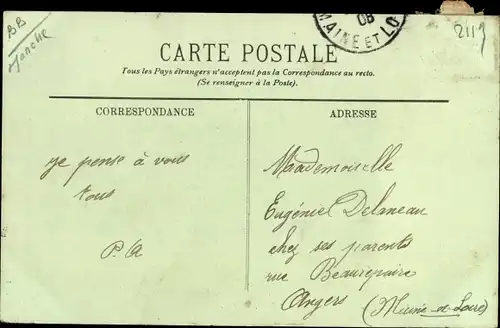 BB
Manche
08
MAINE ET LO
CARTE POSTALE
Tous les Pays étrangers n'acceptent pas la Correspondance au recto.
(Se renseigner à la Poste).
CORRESPONDANCE
je pense à vous
tous
P. A
ADRESSE
Maademoiselle
Eugénie Delaneau
chez ses parents
rue Beaurepaire
Angers (Maine-et-Loire)